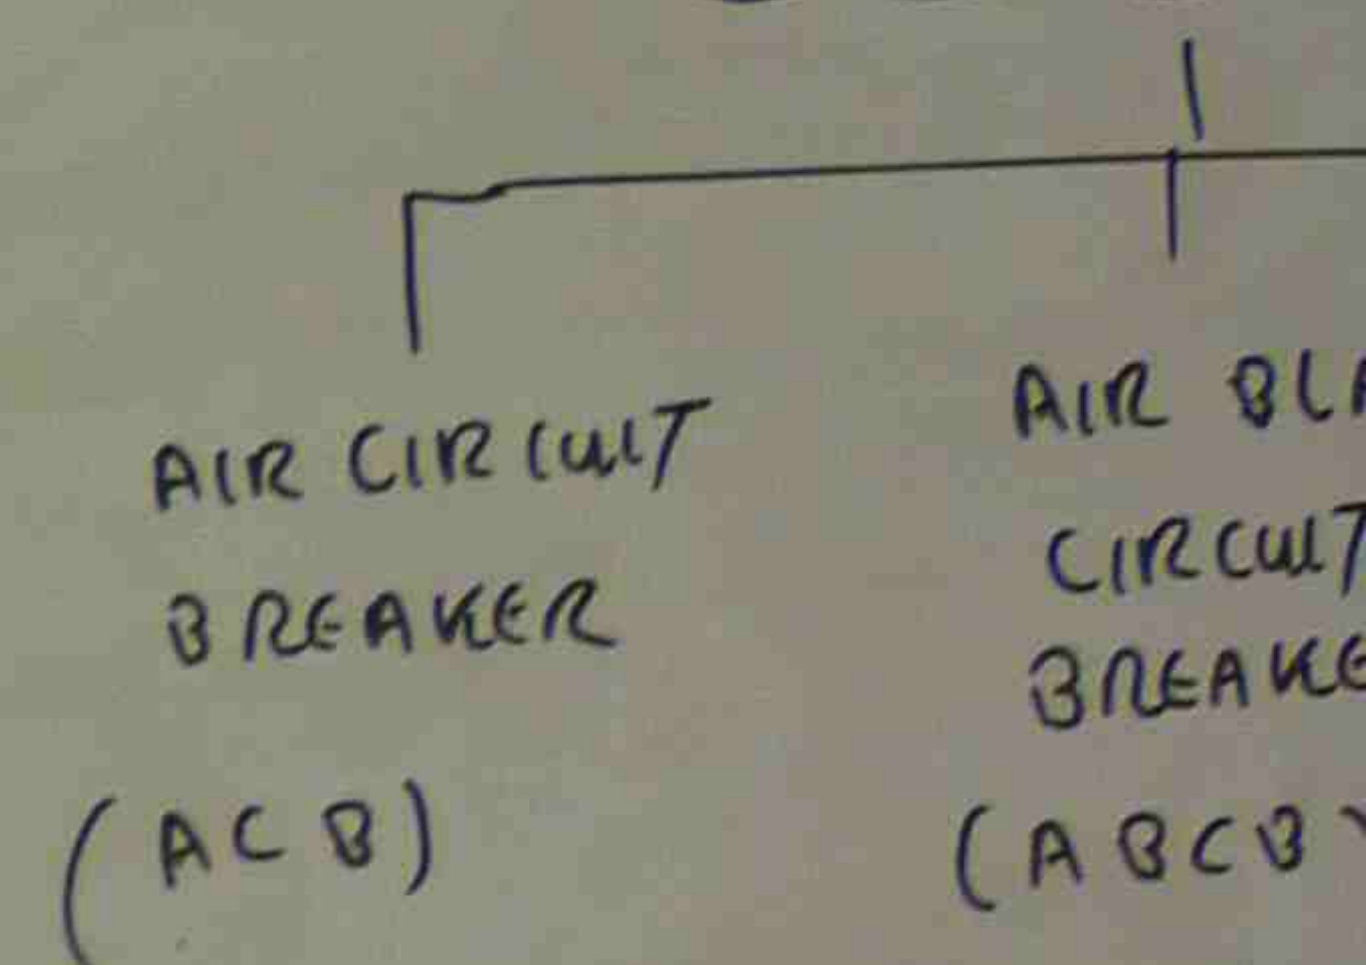 AIR CIRCUIT
BREAKER
(ACB)
AIR
CIRCUIT
(ABCB)